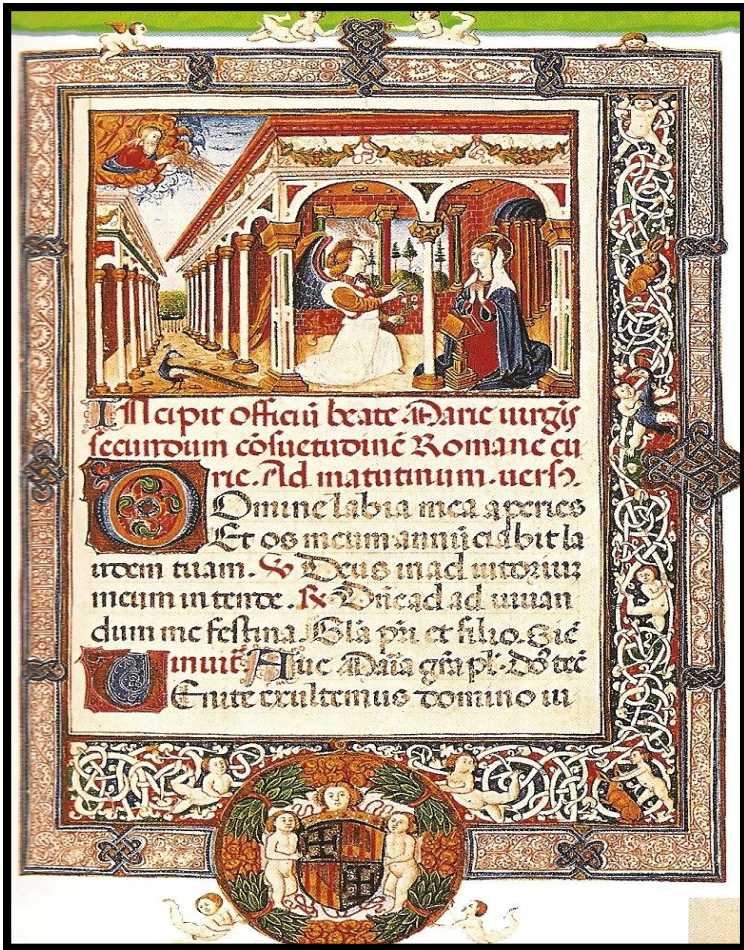 Incipit officiū beate Marie uirgīs
secundum cōsuetudinē Romane cu
rie. Ad matutinum. uersꝰ.
Domine labia mea aperies
Et os meum annūciabit la
udem tuam. ℣ Deus in adiutorium
meum intende. ℟ Dñe ad adiuuan
dum me festina. Glā pri et filio. Sic̄
inuit. Aue Maria grā pl. Dō tec̄
Uenite exultemus domino in